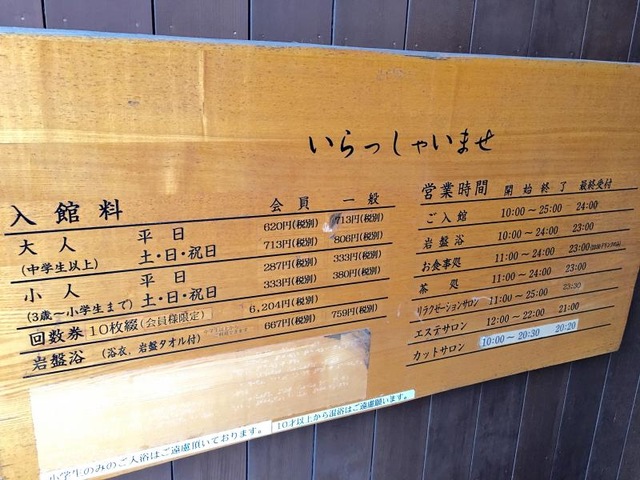 いらっしゃいませ
入館料 会員 一般
大人 平日 620円(税別) 713円(税別)
(中学生以上) 土・日・祝日 713円(税別) 806円(税別)
小人 平日 287円(税別) 333円(税別)
(3歳〜小学生まで) 土・日・祝日 333円(税別) 380円(税別)
回数券 10枚綴(会員様限定) 6,204円(税別)
岩盤浴 (浴衣、岩盤タオル付) 667円(税別) 759円(税別)
営業時間 開始 終了 最終受付
ご入館 10:00〜25:00 24:00
岩盤浴 10:00〜24:00 23:00
お食事処 11:00〜24:00 23:00
茶処 11:00〜24:00 23:00
リラクゼーションサロン 11:00〜25:00 23:30
エステサロン 12:00〜22:00 21:00
カットサロン 10:00〜20:30 20:20
小学生のみのご入浴はご遠慮頂いております。
10才以上から混浴はご遠慮願います。